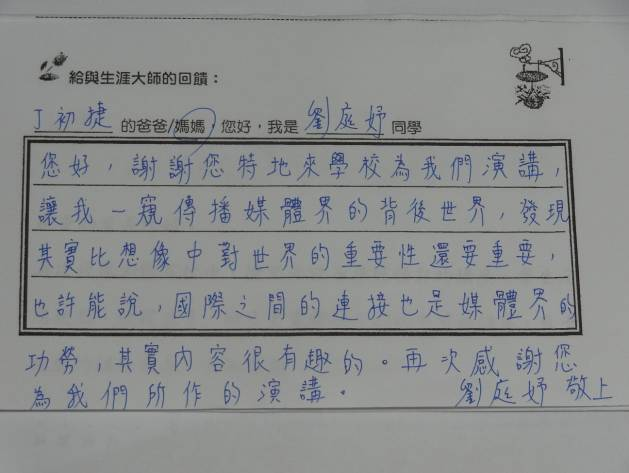 給與生涯大師的回饋：
丁初捷 的爸爸/媽媽，您好，我是 劉庭妤 同學
您好，謝謝您特地來學校為我們演講，
讓我一窺傳播媒體界的背後世界，發現
其實比想像中對世界的重要性還要重要，
也許能說，國際之間的連接也是媒體界的
功勞，其實內容很有趣的。再次感謝您
為我們所作的演講。 劉庭妤 敬上